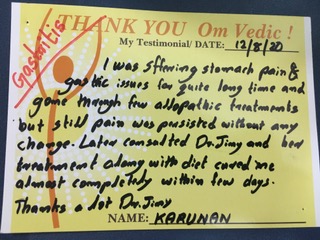 THANK YOU Om Vedic !
My Testimonial/ DATE: 12/8/20
Gastritis
I was sffering stomach pain &
gastric issues for quite long time and
gome through few allopathic treatments
but still pain was pursisted without any
change. Later consalted Dr.Jimy and her
treatment along with diet cured me
almost completely within few days.
Thanks a lot Dr.Jimy
NAME: KARUNAN